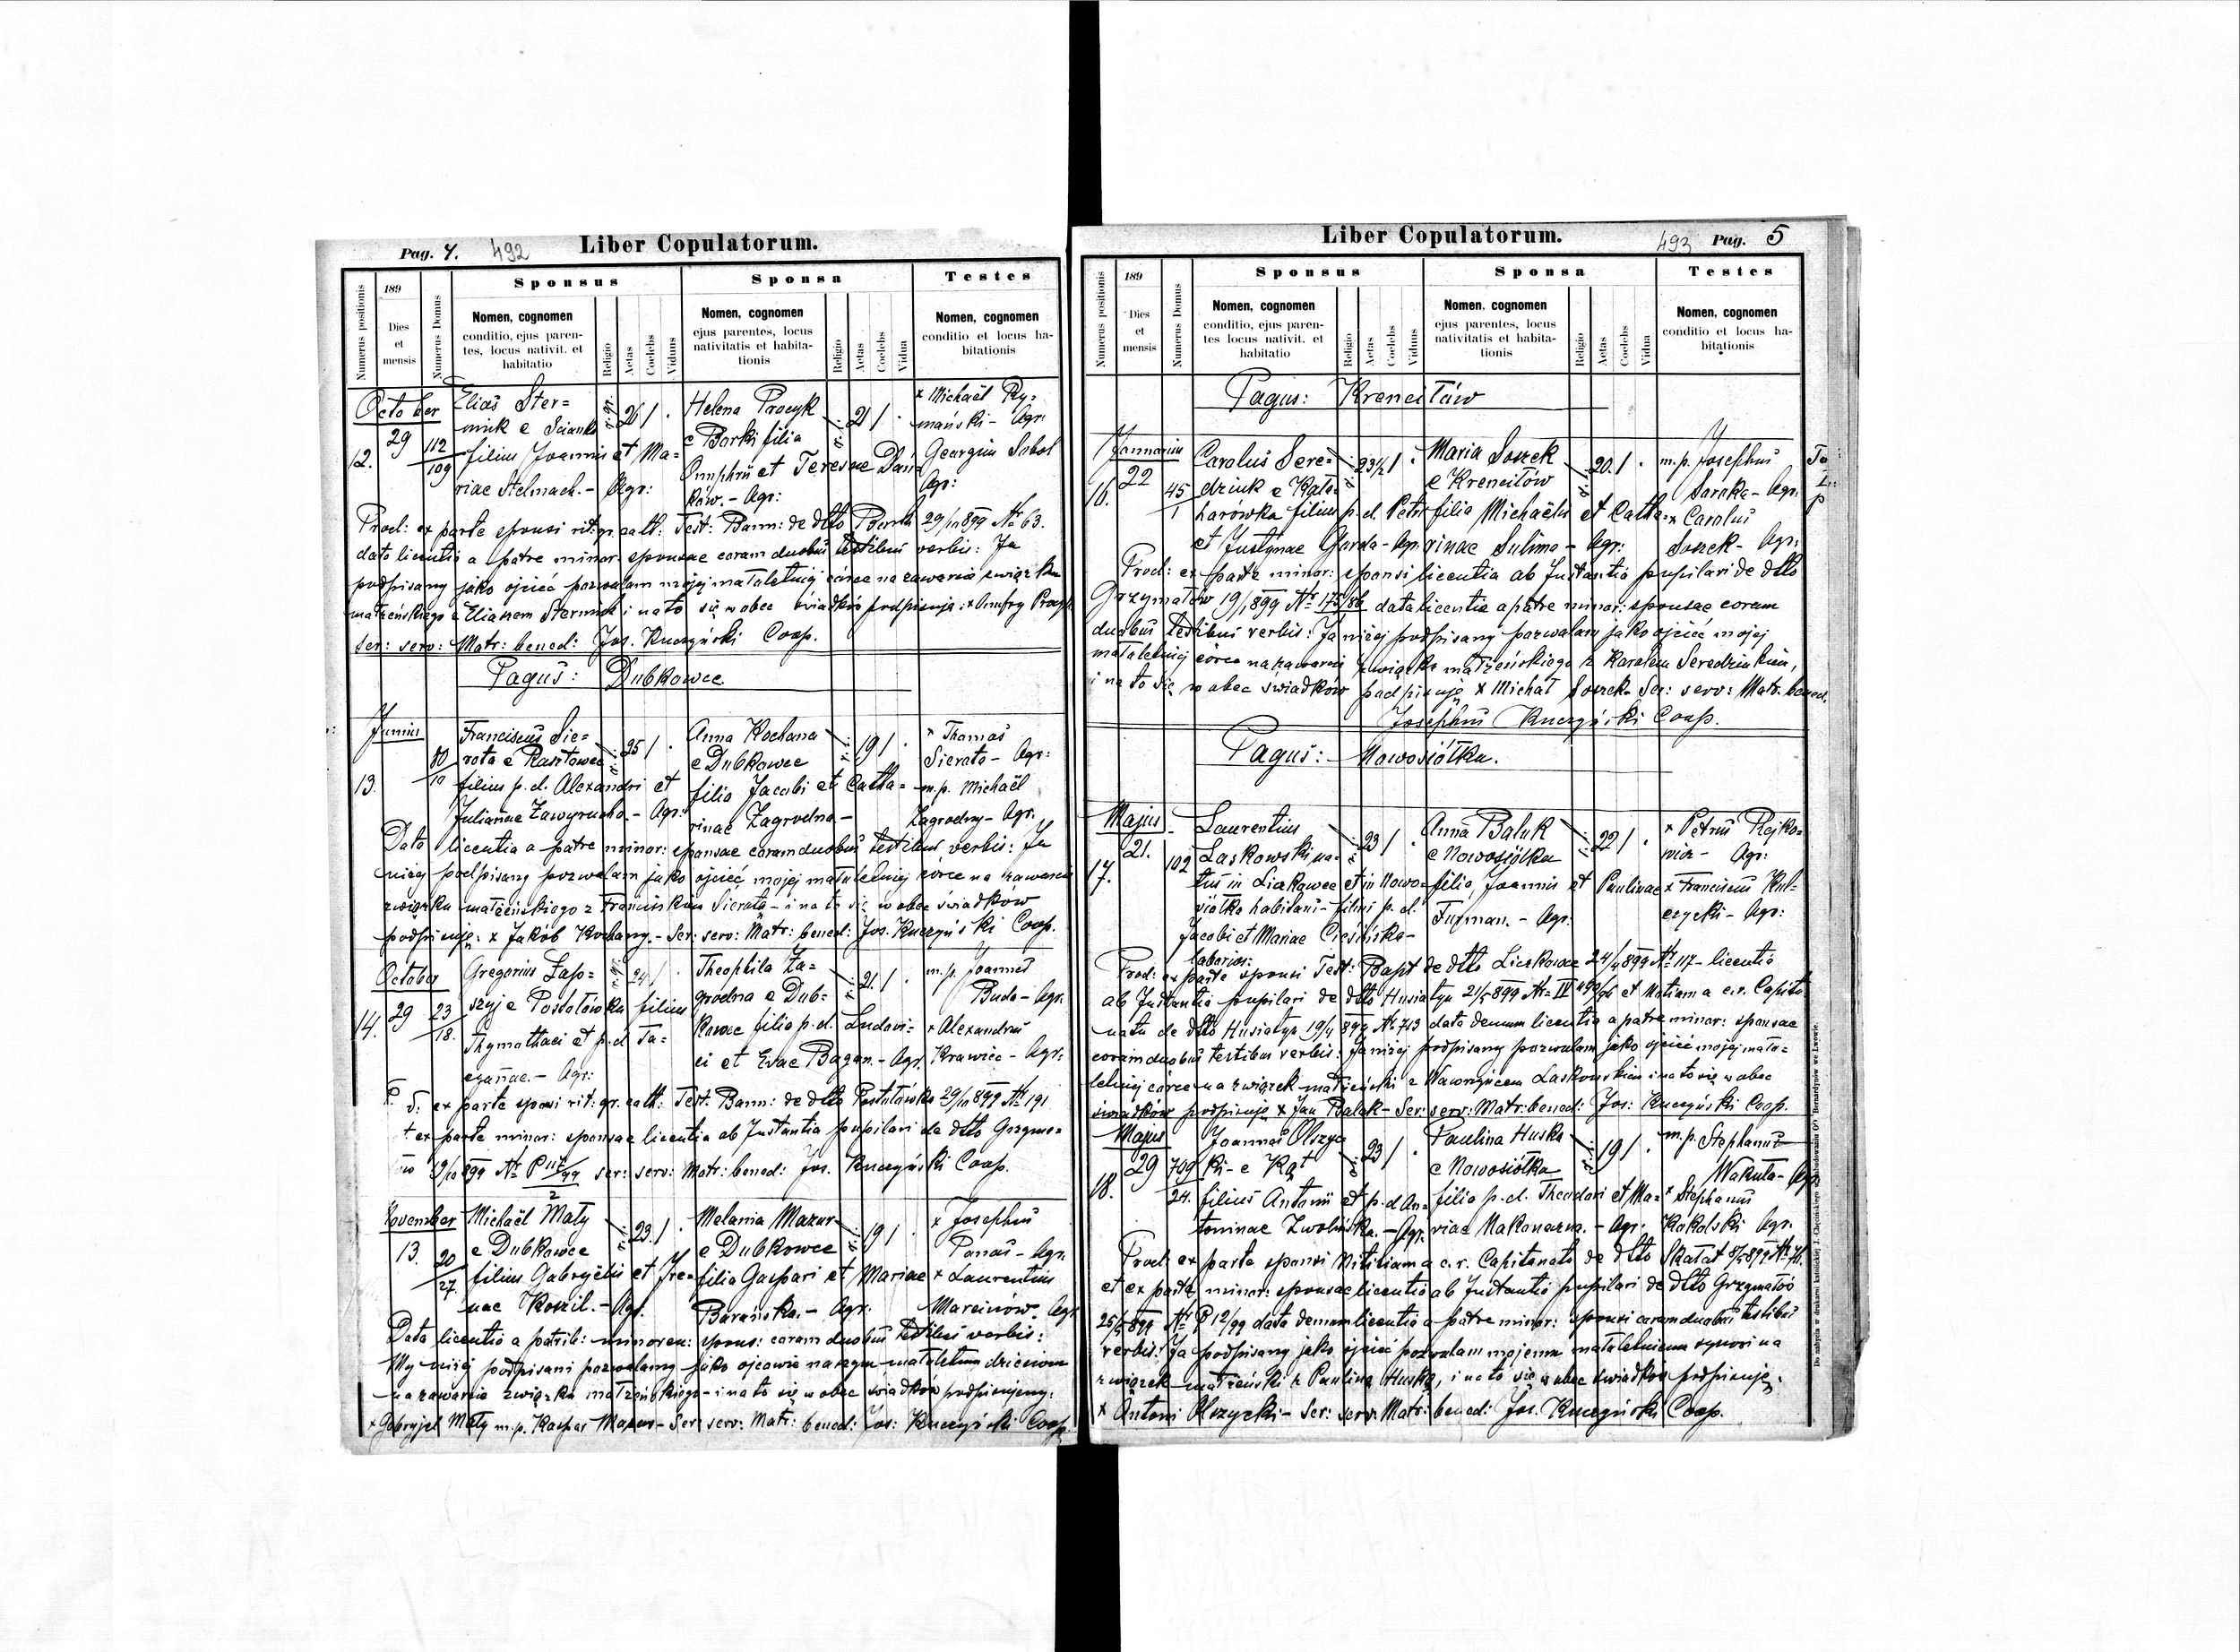 Pag. 4. 492 Liber Copulatorum.
Numerus positionis
189
Dies
et
mensis
Numerus Domus
Sponsus
Nomen, cognomen
conditio, ejus paren-
tes, locus nativit. et
habitatio
Religio
Aetas
Coelebs
Viduus
Sponsa
Nomen, cognomen
ejus parentes, locus
nativitatis et habita-
tionis
Religio
Aetas
Coelebs
Vidua
Testes
Nomen, cognomen
conditio et locus ha-
bitationis
October
29
12.
112
109
Elias Ster=
miuk e Scianka
filius Joannis et Ma=
riae Stelmach.- Agr:
26 1 .
Helena Procyk
e Borki filia
Onuphrii et Teresae Dań=
ków.- Agr:
21 1 .
x Michaël Ry=
mański- Agr:
Georgius Sobol
Agr:
Prod: ex parte sponsi rit: gr. cath: Test: Bann: de dtto 29/10 899 № 63.
data licentia a patre minor: sponsae coram duobus testibus verbis: Ja
podpisany jako ojciec pozwalam mojej małoletniej córce na zawarcie związku
małżeńskiego z Eliaszem i na to się w obec świadków podpisuję: x
Ser: serv: Matr: bened: Jos. Kuczyński Coop.
Pagus: Dubkowce
Junius
13.
80
10
Franciscus Sie=
rota e Rasztowce
filius p.d. Alexandri et
Julianae Zawyrucha.- Agr:
25 1 .
Anna Kochana
e Dubkowce
filia Jacobi et Catha=
rinae Zagrodna-
19 1 .
x Thomas
Sierota- Agr:
m.p. Michaël
Zagrodny- Agr:
Data licentia a patre minor: sponsae coram duobus testibus verbis: Ja
niżej podpisany pozwalam jako ojciec mojej małoletniej córce na zawarcie
związku małżeńskiego z Franciszkiem Sierotą- i na to się w obec świadków
podpisuję: x Jakób Kochany.- Ser: serv: Matr: bened: Jos. Kuczyński Coop.
October
29
14.
23
18.
Gregorius Zap=
Postołówka filius
Thymothaei et p.d. Ta=
cyannae.- Agr:
24 1
Theophila Za=
grodna e Dub=
kowce filia p.d. Ludovi=
ci et Evae Bagan.- Agr.
21. 1 .
m.p. Joannes
Buda- Agr.
x Alexandrus
Krawiec- Agr:
ex parte sponsi rit: gr. cath: Test: Bann: de dtto Postołówka 29/10 899 № 191
ex parte minor: sponsae licentia ab Instantia pupilari de dtto Grzyma=
19/10 899 № ser: serv: Matr: bened: Jos. Kuczyński Coop.
November
13.
20
27.
Michaël Mały
e Dubkowce
filius Gabryëlis et Ire=
nae Koszil.- Agr.
23. 1 .
Melania Mazur
e Dubkowce
filia Gaspari et Mariae
Barańska.- Agr.
19 1 .
x Josephus
Panas- Agr.
x Laurentius
Marcinów- Agr.
Data licentia a patrib: minoren: spons: coram duobus testibus verbis:
My niżej podpisani pozwalamy jako ojcowie naszym małoletnim dzieciom
na zawarcie związku małżeńskiego- i na to się w obec świadków podpisujemy:
x Gabryjel Mały m.p. Kasper Mazur- Ser: serv: Matr: bened: Jos: Kuczyński Coop.
Liber Copulatorum. 493 Pag. 5
Numerus positionis
189
Dies
et
mensis
Numerus Domus
Sponsus
Nomen, cognomen
conditio, ejus paren-
tes, locus nativit. et
habitatio
Religio
Aetas
Coelebs
Viduus
Sponsa
Nomen, cognomen
ejus parentes, locus
nativitatis et habita-
tionis
Religio
Aetas
Coelebs
Vidua
Testes
Nomen, cognomen
conditio et locus ha-
bitationis
Pagus: Krenciłów
Januarius
22
16.
45
1
Carolus Sere=
dziuk e Kała=
harówka filius p.d. Petri
et Justynae Garda- Agr.
23 1/2 1 .
Maria Soszek
e Krenciłów
filia Michaëlis et Catha=
rinae Sulima- Agr:
20. 1 .
m.p. Josephus
Saraka- Agr.
x Carolus
Soszek- Agr:
Prod: ex parte minor: sponsi licentia ab Instantia pupilari de dtto
Grzymałów 19/1 899 № 175/86 data licentia a patre minor: sponsae coram
duobus testibus verbis: Ja niżej podpisany pozwalam jako ojciec mojej
małoletniej córce na zawarcie związku małżeńskiego z Karolem Seredziukiem,
i na to się w obec świadków podpisuję x Michał Soszek- Ser: serv: Matr. bened.
Josephus Kuczyński Coop.
Pagus: Nowosiółka.
Majus
21.
17.
102
Laurentius
Laskowski na=
tus in Liczkowce et in Nowo=
siółka habitans- filius p.d.
Jacobi et Mariae Ciesińska-
laborios:
23 1 .
Anna Baluk
e Nowosiółka
filia Joannis et Paulinae
Furman.- Agr:
22 1 .
x Petrus Rojko=
wicz- Agr:
x Franciscus Kul=
czycki- Agr:
Prod: ex parte sponsi Test: Bapt de dtto Liczkowce 24/4 899 № 117- licentia
ab Instantia pupilari de dtto Husiatyn 21/5 899 № IV et Notitiam a c.r. Capita
natu de dtto Husiatyn 19/4 899 № 743 data demum licentia a patre minor: sponsae
coram duobus testibus verbis: Ja niżej podpisany pozwalam jako ojciec mojej mało=
letniej córce na związek małżeński z Wawrzyńcem Laskowskim i na to się w obec
świadków podpisuję x Jan Baluk- Ser: serv: Matr: bened: Jos: Kuczyński Coop.
Majus
29
18.
709
24.
Joannes Olszyc
ki- e Kąt
filius Antonii et p.d. An=
toninae Zwolińska.- Agr.
23 1 .
Paulina Huska
e Nowosiółka
filia p.d. Theodori et Ma=
riae Makoważna.- Agr:
19 1 .
m.p. Stephanus
Wakuła- Agr
x Stephanus
Kokolski Agr.
Prod: ex parte sponsi Notitiam a c.r. Capitanato de dtto Skałat 8/5 899 № 76.
et ex parte minor: sponsae licentia ab Instantia pupilari de dtto Grzymałów
25/5 899 № P 12/99 data demum licentia a patre minor: sponsi coram duobus testibus
verbis: Ja podpisany jako ojciec pozwalam mojemu małoletniemu synowi na
związek małżeński z Pauliną Huską, i na to się w obec świadków podpisuję.
x Antoni Olszycki- Ser: serv: Matr: bened: Jos. Kuczyński Coop.